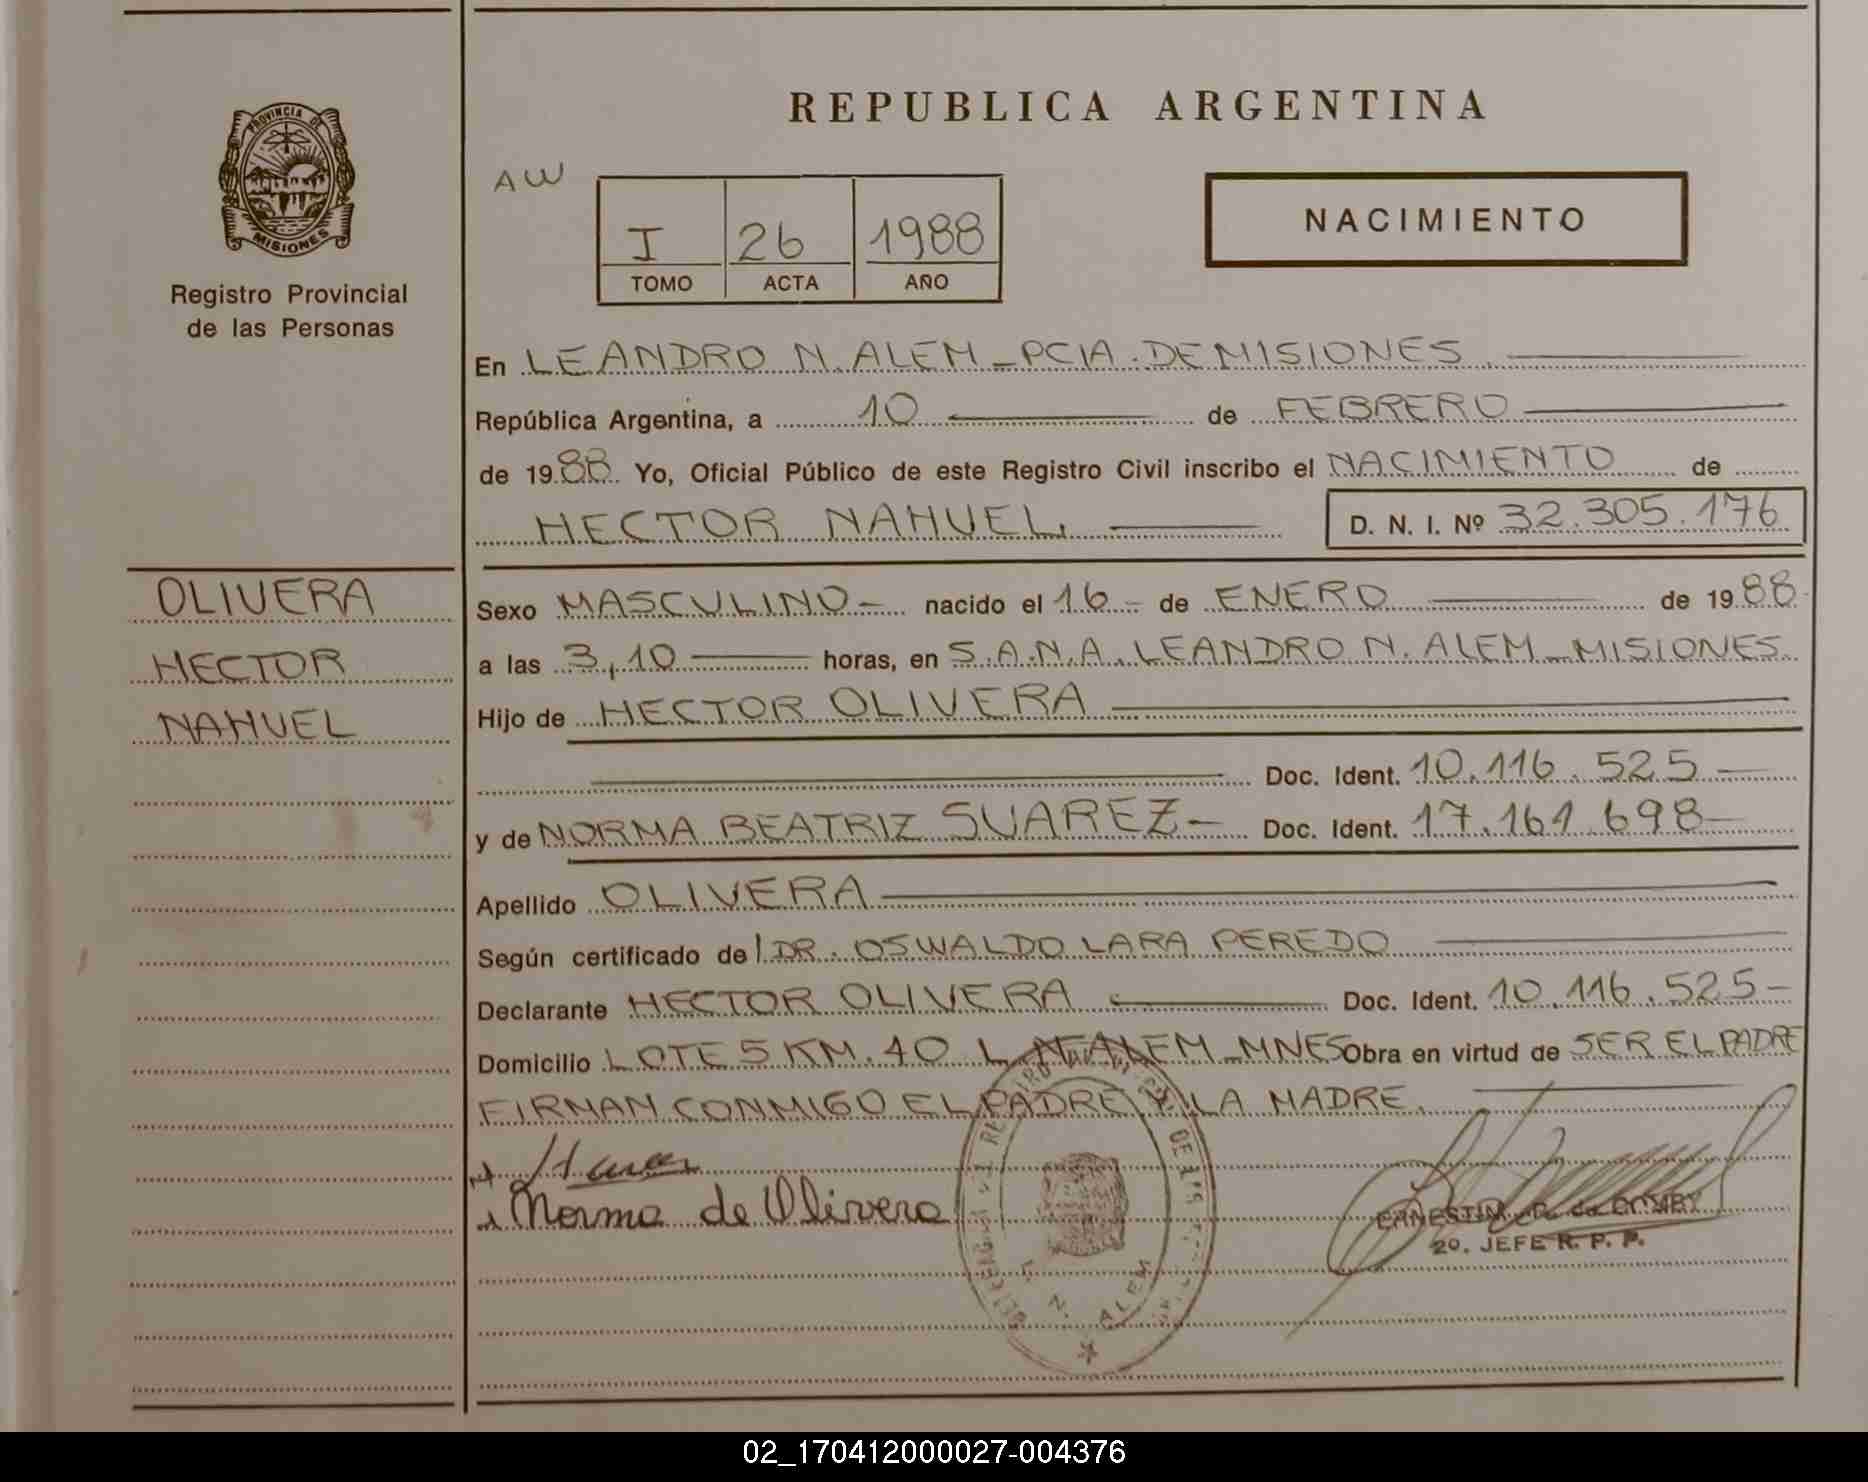 REPUBLICA ARGENTINA
PROVINCIA DE
MISIONES
Registro Provincial
de las Personas
AW
I 26 1988
TOMO ACTA AÑO
NACIMIENTO
En LEANDRO N. ALEM - PCIA. DE MISIONES.
República Argentina, a 10 de FEBRERO
de 1988. Yo, Oficial Público de este Registro Civil inscribo el NACIMIENTO de
HECTOR NAHUEL. D. N. I. Nº 32.305.176
OLIVERA
HECTOR
NAHUEL
Sexo MASCULINO - nacido el 16 - de ENERO de 1988-
a las 3,10 horas, en S.A.N.A. LEANDRO N. ALEM - MISIONES.
Hijo de HECTOR OLIVERA
Doc. Ident. 10.116.525 -
y de NORMA BEATRIZ SUAREZ - Doc. Ident. 17.161.698 -
Apellido OLIVERA
Según certificado del DR. OSWALDO LARA PEREDO
Declarante HECTOR OLIVERA Doc. Ident. 10.116.525 -
Domicilio LOTE 5 KM. 40 L. N. ALEM - MNES Obra en virtud de SER EL PADRE
FIRMAN CONMIGO EL PADRE Y LA MADRE.
Norma de Olivera
DE LAS
L. N. ALEM
2º. JEFE R. P. P.
02_170412000027-004376